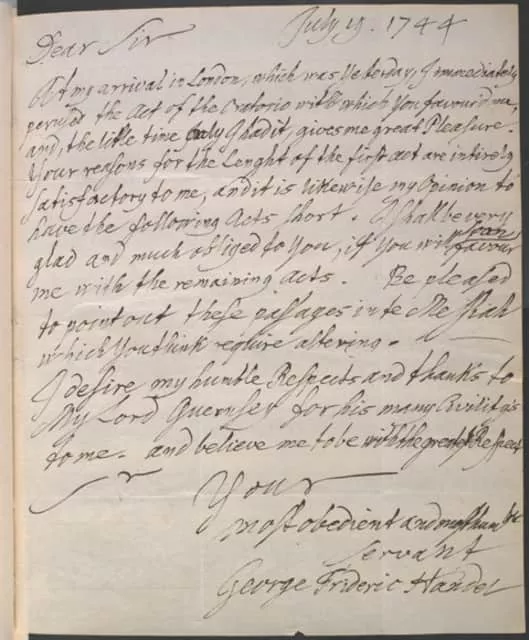 July 19. 1744
Dear Sir
At my arrival in London, which was Yesterday, I immediately
perused the Act of the Oratorio with which You favour'd me,
and, the little time only I had it, gives me great Pleasure.
Your reasons for the Lenght of the first act are intirely
satisfactory to me, and it is likewise my Opinion to
have the following Acts short. I shall be very
glad and much obliged to You, if You will soon favour
me with the remaining Acts. Be pleased
to point out these passages in te Messiah
which You think require altering.
I desire my humble Respects and thanks to
My Lord Guernsey for his many Civility's
to me. and believe me to be with the greatest Respect
Sr
Your
most obedient and most humble
Servant
George Frideric Handel